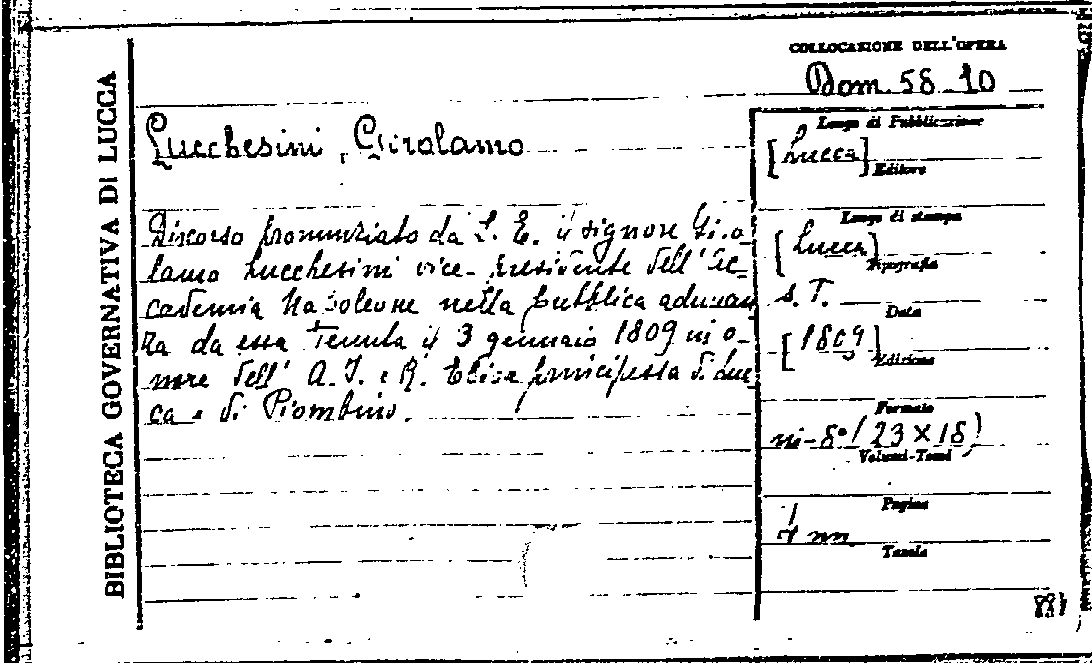 BIBLIOTECA GOVERNATIVA DI LUCCA
COLLOCAZIONE DELL'OPERA
Dom. 58. 10
Lucchesini, Girolamo
Discorso pronunziato da S. E. il signore Giro-
lamo Lucchesini vice-presidente dell'Ac-
cademia Napoleone nella pubblica adunan
za da essa tenuta il 3 gennaio 1809 in o-
nore dell' A. I. e R. Elisa principessa di Luc
ca e di Piombino.
Luogo di Pubblicazione
[Lucca]
Editore
Luogo di stampa
[Lucca]
Tipografia
s. T.
Data
[1809]
Edizione
Formato
in-8° (23 X 18)
Volumi-Tomi
Pagine
nn.
Tavole